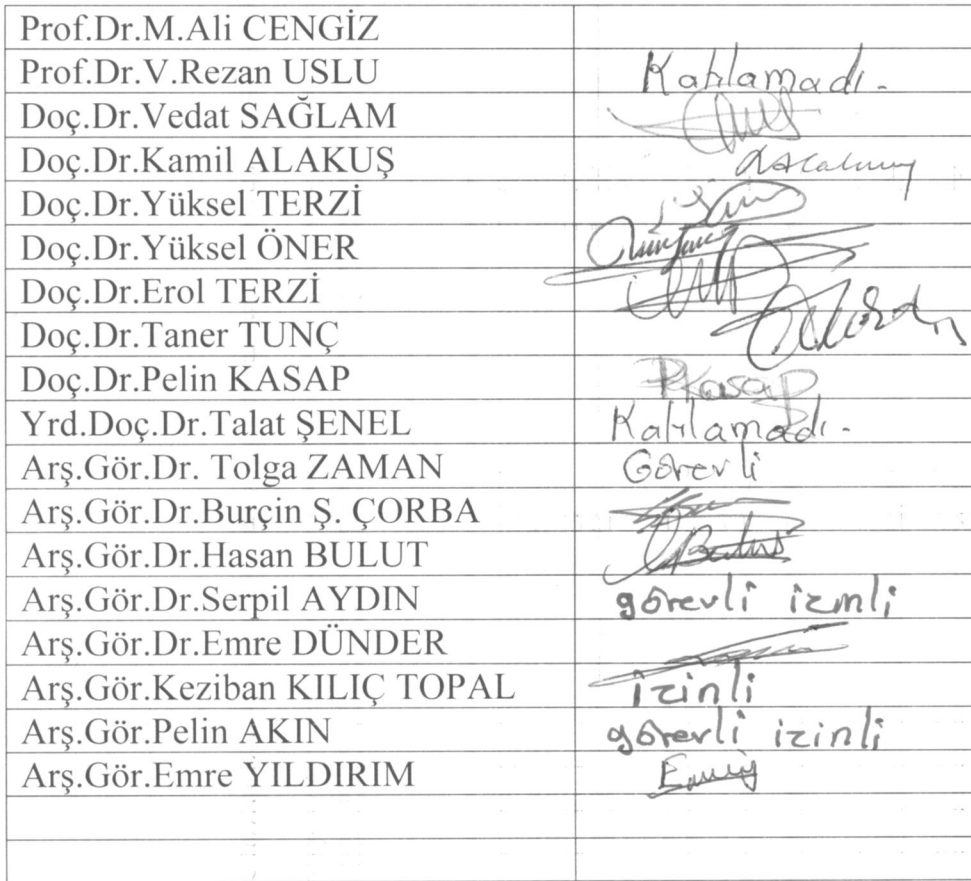 Prof.Dr.M.Ali CENGİZ
Prof.Dr.V.Rezan USLU Katılamadı.
Doç.Dr.Vedat SAĞLAM
Doç.Dr.Kamil ALAKUŞ
Doç.Dr.Yüksel TERZİ
Doç.Dr.Yüksel ÖNER
Doç.Dr.Erol TERZİ
Doç.Dr.Taner TUNÇ
Doç.Dr.Pelin KASAP PKasap
Yrd.Doç.Dr.Talat ŞENEL Katılamadı.
Arş.Gör.Dr. Tolga ZAMAN Görevli
Arş.Gör.Dr.Burçin Ş. ÇORBA
Arş.Gör.Dr.Hasan BULUT
Arş.Gör.Dr.Serpil AYDIN görevli izinli
Arş.Gör.Dr.Emre DÜNDER
Arş.Gör.Keziban KILIÇ TOPAL izinli
Arş.Gör.Pelin AKIN görevli izinli
Arş.Gör.Emre YILDIRIM